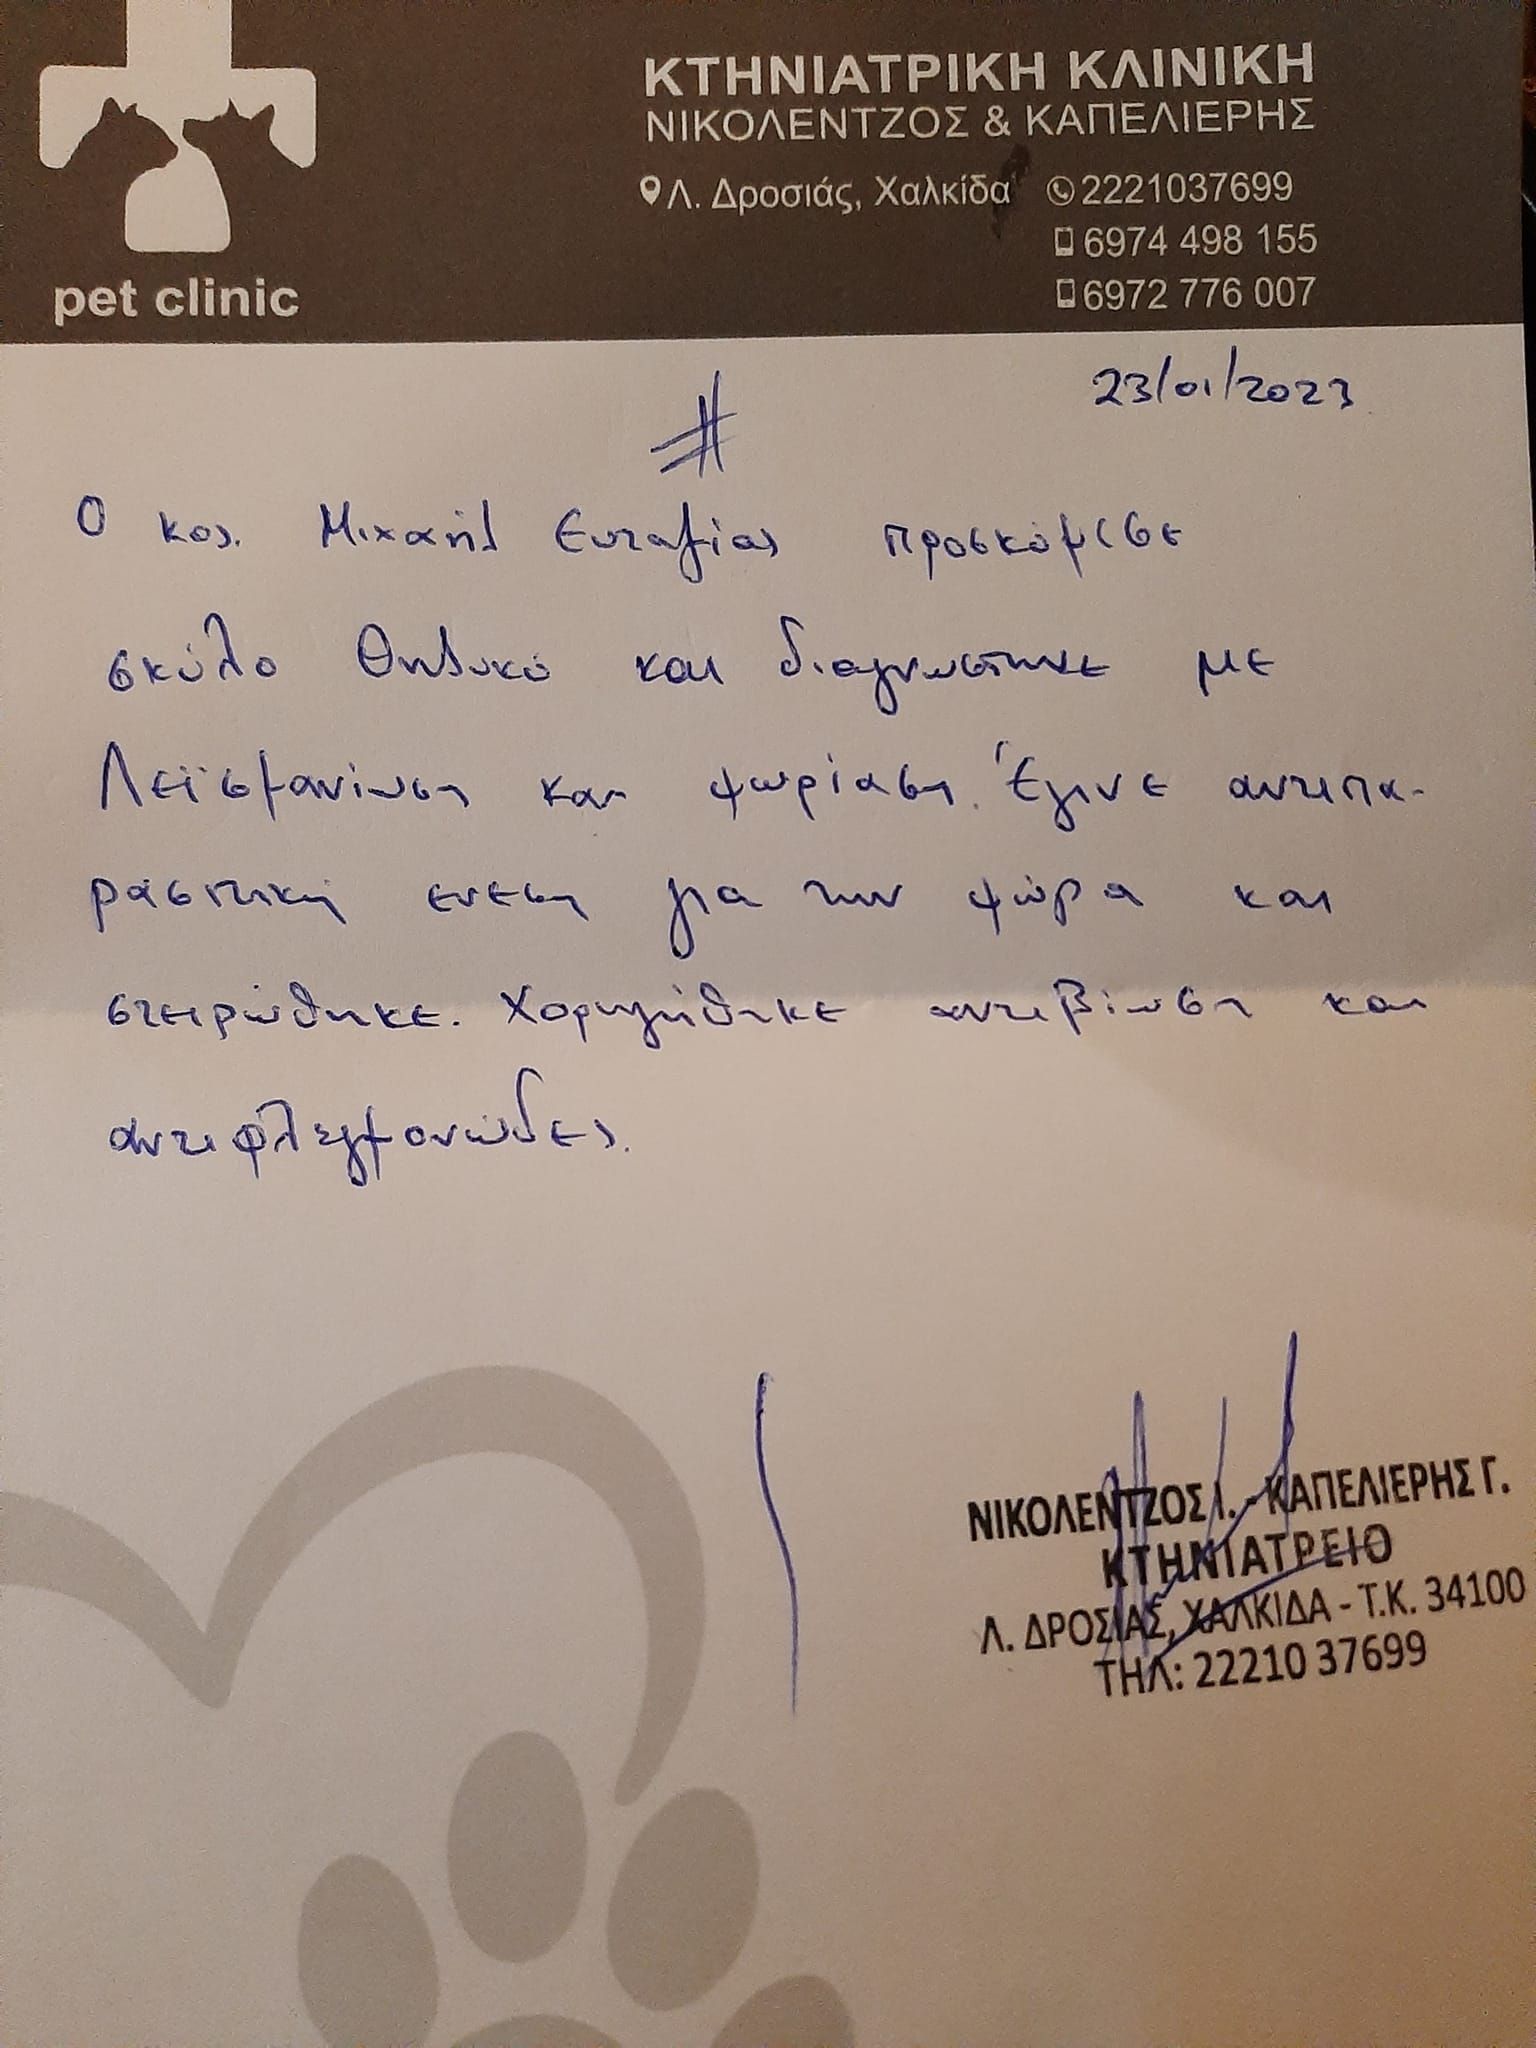 ΚΤΗΝΙΑΤΡΙΚΗ ΚΛΙΝΙΚΗ
ΝΙΚΟΛΕΝΤΖΟΣ & ΚΑΠΕΛΙΕΡΗΣ
Λ. Δροσιάς, Χαλκίδα 2221037699
6974 498 155
6972 776 007
pet clinic
23/01/2023
#
Ο κος. Μιχαήλ Ευταξίας προσκόμισε
σκύλο θηλυκό και διαγνωστηκε με
Λεϊσμανίωση και ψωρίαση. Έγινε αντιπα-
ρασιτική ενεση για την ψώρα και
στειρώθηκε. Χορηγήθηκε αντιβίωση και
αντιφλεγμονώδες.
ΝΙΚΟΛΕΝΤΖΟΣ Ι. - ΚΑΠΕΛΙΕΡΗΣ Γ.
ΚΤΗΝΙΑΤΡΕΙΟ
Λ. ΔΡΟΣΙΑΣ, ΧΑΛΚΙΔΑ - Τ.Κ. 34100
ΤΗΛ: 22210 37699